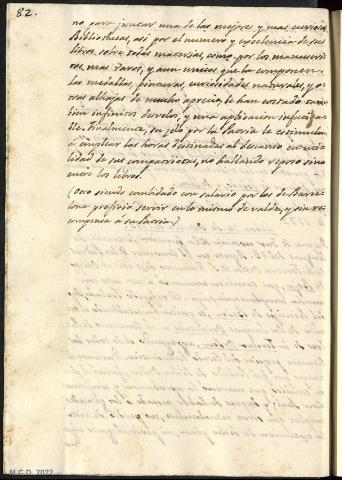 82.
no para juntar una de las mejores, y mas curiosas
Bibliothecas, asi por el numero y excelencia de sus
libros sobre todas materias, como por los manuscri-
tos mas raros, y aun unicos que la componen.
las medallas, pinturas, curiosidades naturales, y o-
tras alhajas de mucho aprecio, le han costado tam-
bien infinitos desvelos, y una aplicacion infatiga-
ble. Finalmente, su zelo por la Patria le estimula
á emplear las horas destinadas al descanso en uti-
lidad de sus compatriotas, no hallando reposo sino
entre los libros.
(Otro siendo combidado con salario por los de Barce-
lona prefirió servir en lo mismo de valde, y sin re-
compensa á su Patria.)
M.C.D. 2022